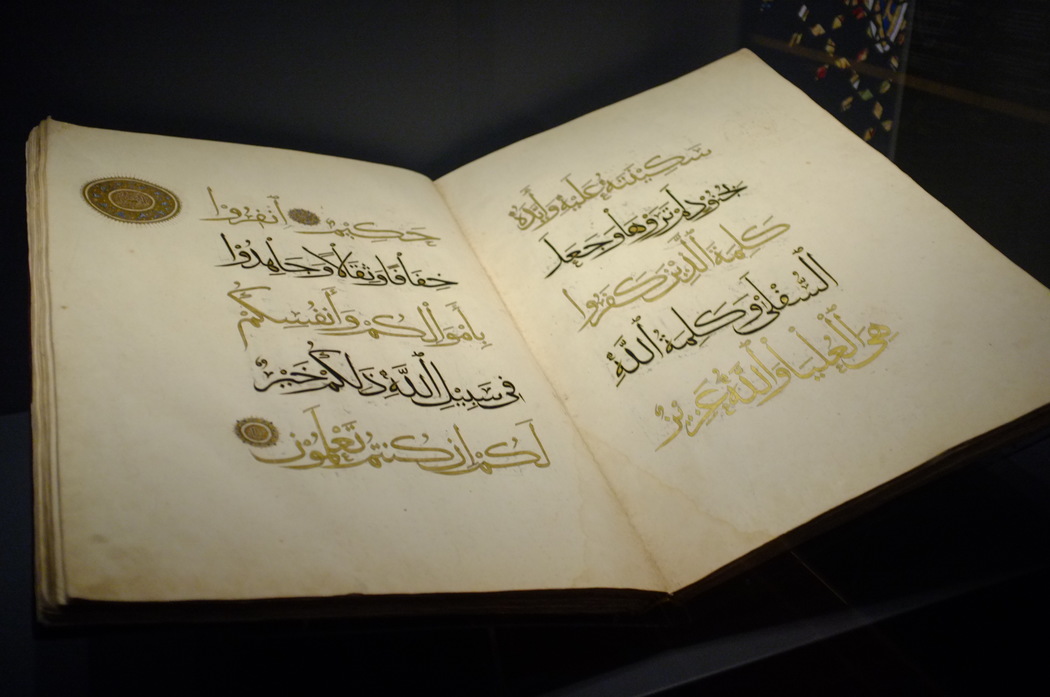 سَكِينَتَهُ عَلَيْهِ وَأَيَّدَهُ
بِجُنُودٍ لَمْ تَرَوْهَا وَجَعَلَ
كَلِمَةَ الَّذِينَ كَفَرُوا
السُّفْلَىٰ وَكَلِمَةُ اللَّهِ
هِيَ الْعُلْيَا وَاللَّهُ عَزِيزٌ
حَكِيمٌ انْفِرُوا
خِفَافًا وَثِقَالًا وَجَاهِدُوا
بِأَمْوَالِكُمْ وَأَنْفُسِكُمْ
فِي سَبِيلِ اللَّهِ ذَٰلِكُمْ خَيْرٌ
لَكُمْ إِنْ كُنْتُمْ تَعْلَمُونَ